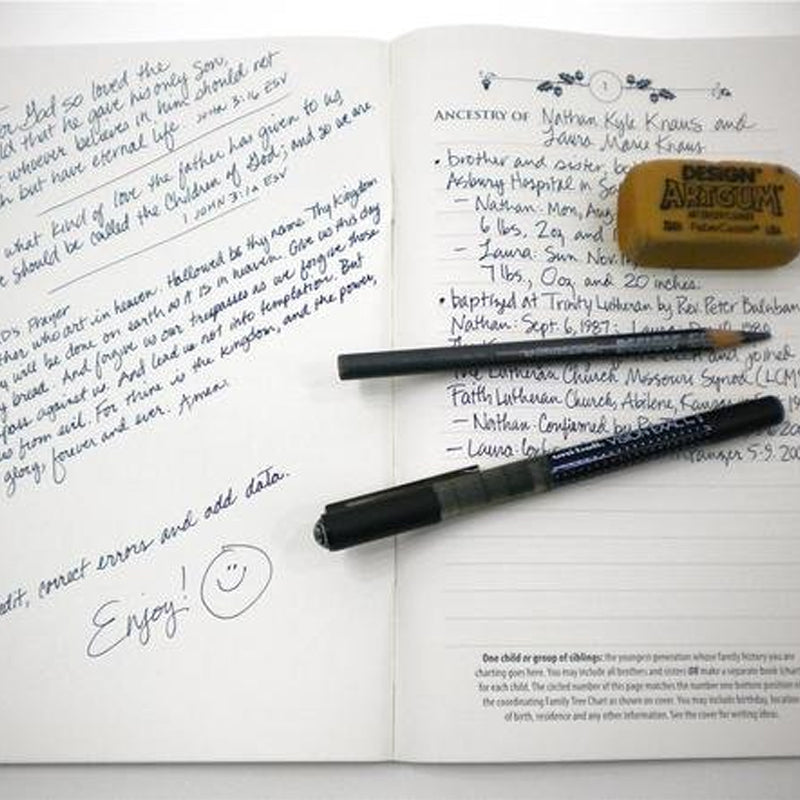 God so loved the
that he gave his only Son,
whoever believes in him should not
but have eternal life. JOHN 3:16 ESV
what kind of love the father has given to us
should be called the Children of God; and so we are.
1 JOHN 3:1a ESV
Prayer
who art in heaven. Hallowed be thy name. Thy Kingdom
will be done on earth as it is in heaven. Give us this day
bread. And forgive us our trespasses as we forgive those
against us. And lead us not into temptation. But
us from evil. For thine is the kingdom, and the power,
glory, forever and ever. Amen.
edit, correct errors and add data.
Enjoy!
1
ANCESTRY OF Nathan Kyle Kraus and
Laura Marie Kraus
• brother and sister,
Asbury Hospital in
– Nathan: Mon, Aug
6 lbs, 2oz and
– Laura: Sun Nov.
7 lbs, 0oz and 20 inches.
• baptized at Trinity Lutheran by Rev. Peter
Nathan: Sept. 6, 1987;
and joined
The Lutheran Church Missouri Synod
Faith Lutheran Church, Abilene,
– Nathan: Confirmed by
– Laura: 5-9.
DESIGN
ARTGUM
One child or group of siblings: the youngest generation whose family history you are
charting goes here. You may include all brothers and sisters OR make a separate book
for each child. The circled number of this page matches the number one bottom position
the coordinating Family Tree Chart as shown on cover. You may include birthday, location
of birth, residence and any other information. See the cover for writing ideas.